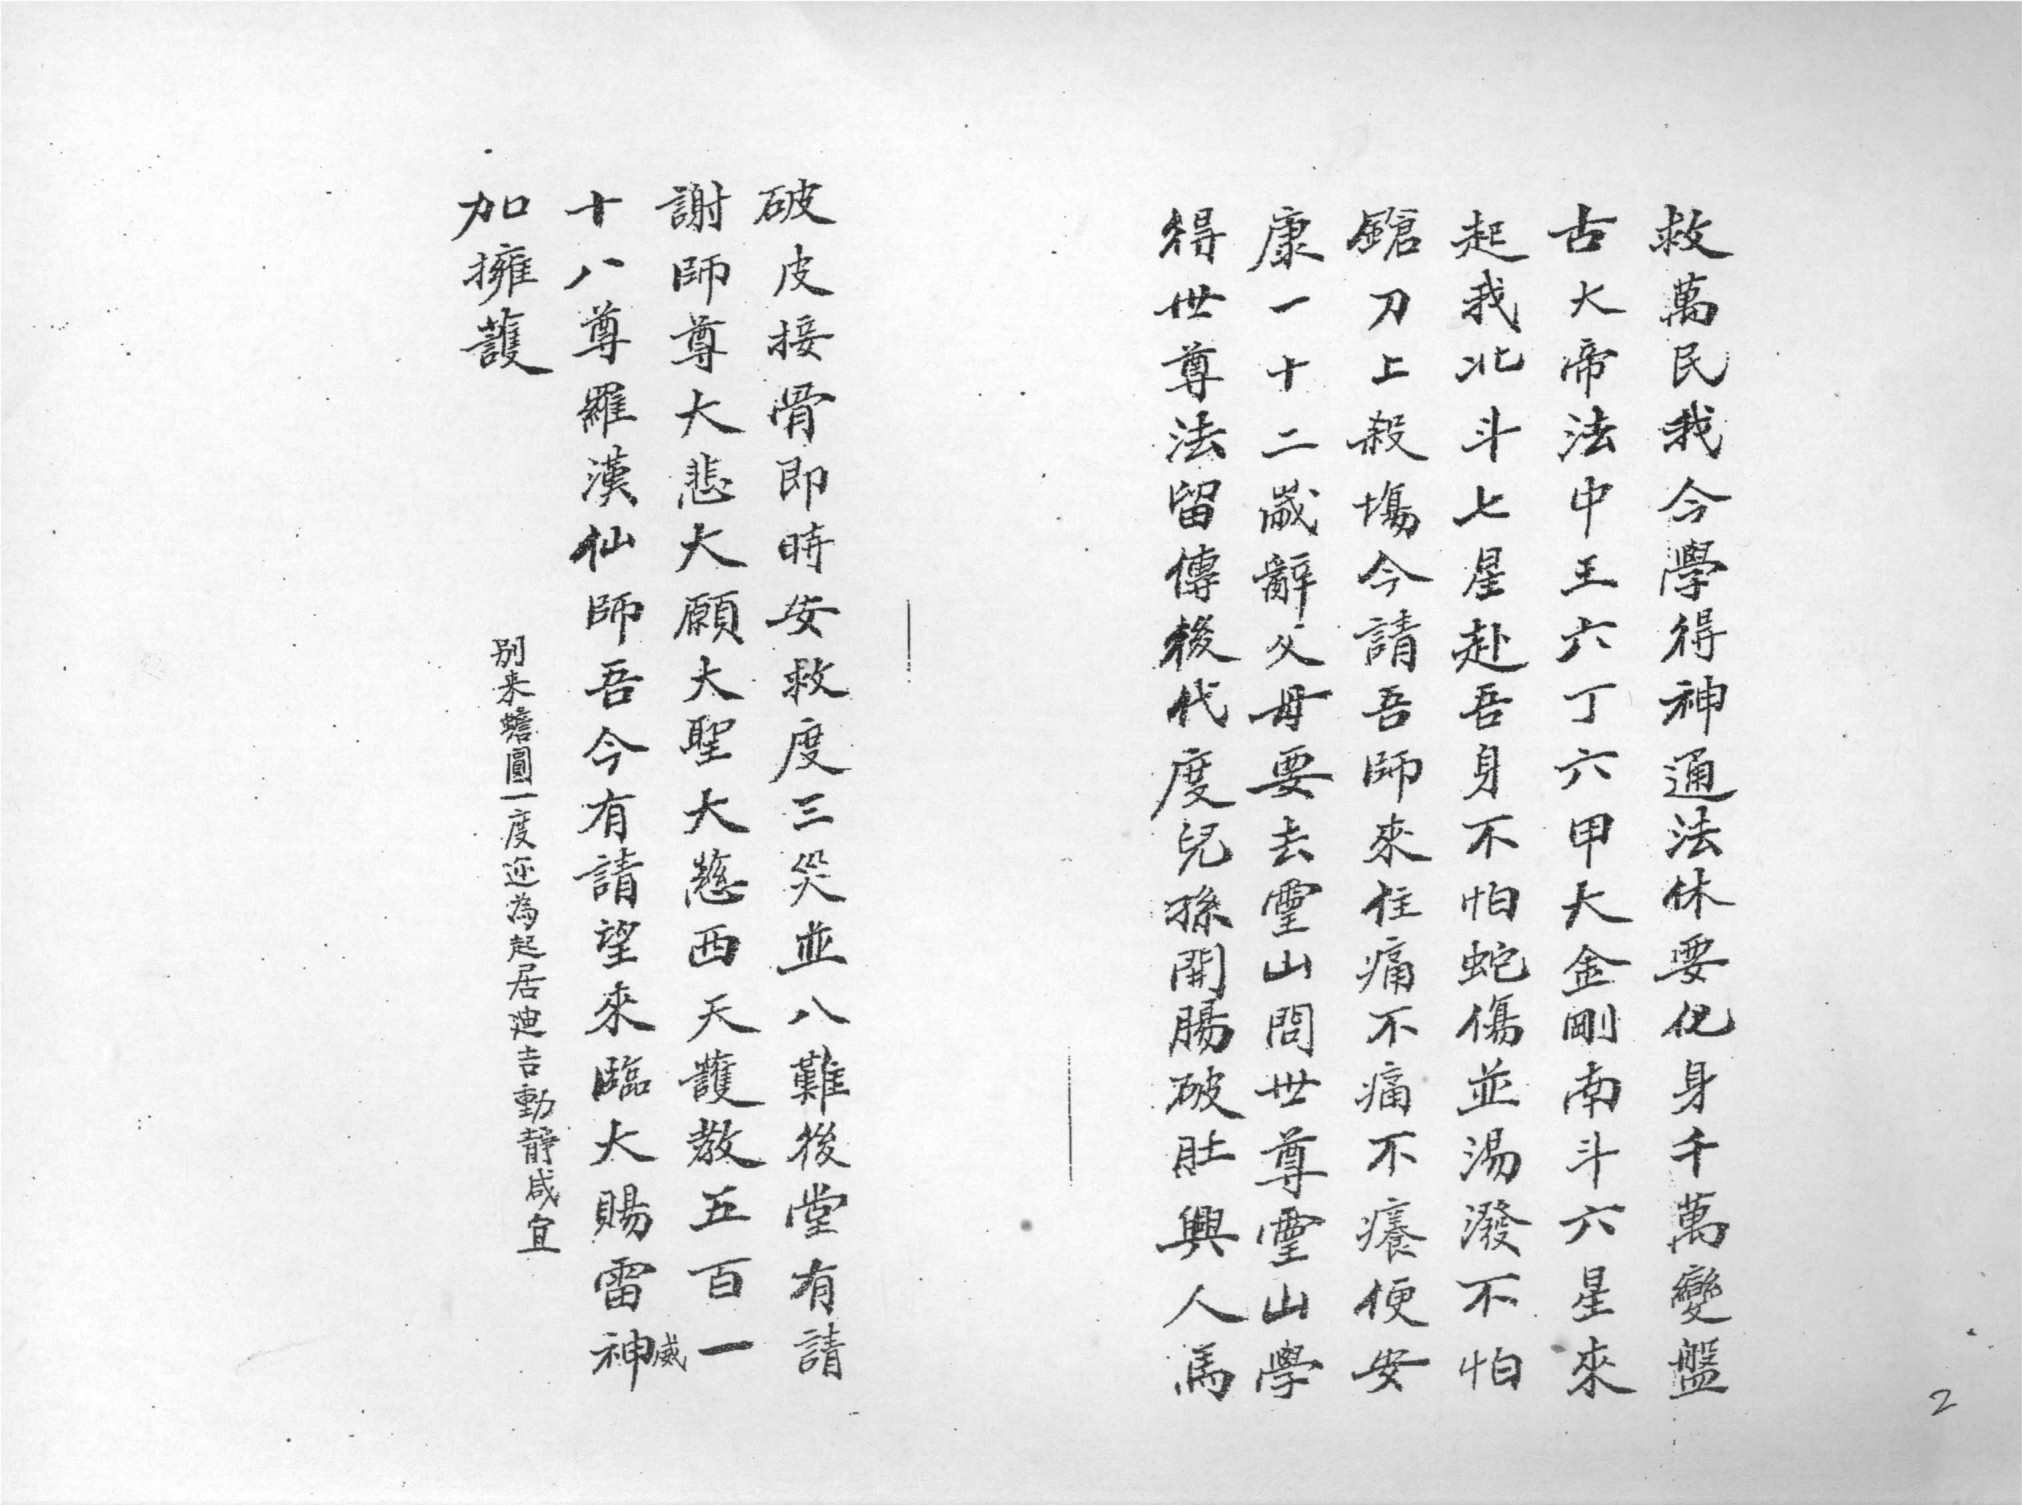 救萬民我今學得神通法休要伲身千萬變盤
古大帝法中王六丁六甲大金剛南斗六星來
起我北斗七星赴吾身不怕蛇傷並湯潑不怕
鎗刀上殺塲今請吾師來住痛不痛不癢便安
康一十二嵗辭父母要去霊山問世尊霊山學
得世尊法留傳後代度兒孫開腸破肚興人馬
破皮接骨即時安救度三災並八難後堂有請
謝師尊大悲大願大聖大慈西天護教五百一
十八尊羅漢仙師吾今有請望來臨大賜雷神威
加擁護
別来蟾圓一度迩為起居迪吉動静咸宜
2